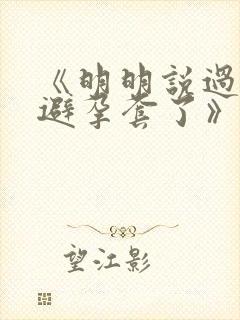 《明明說過
避孕套了》
望江影